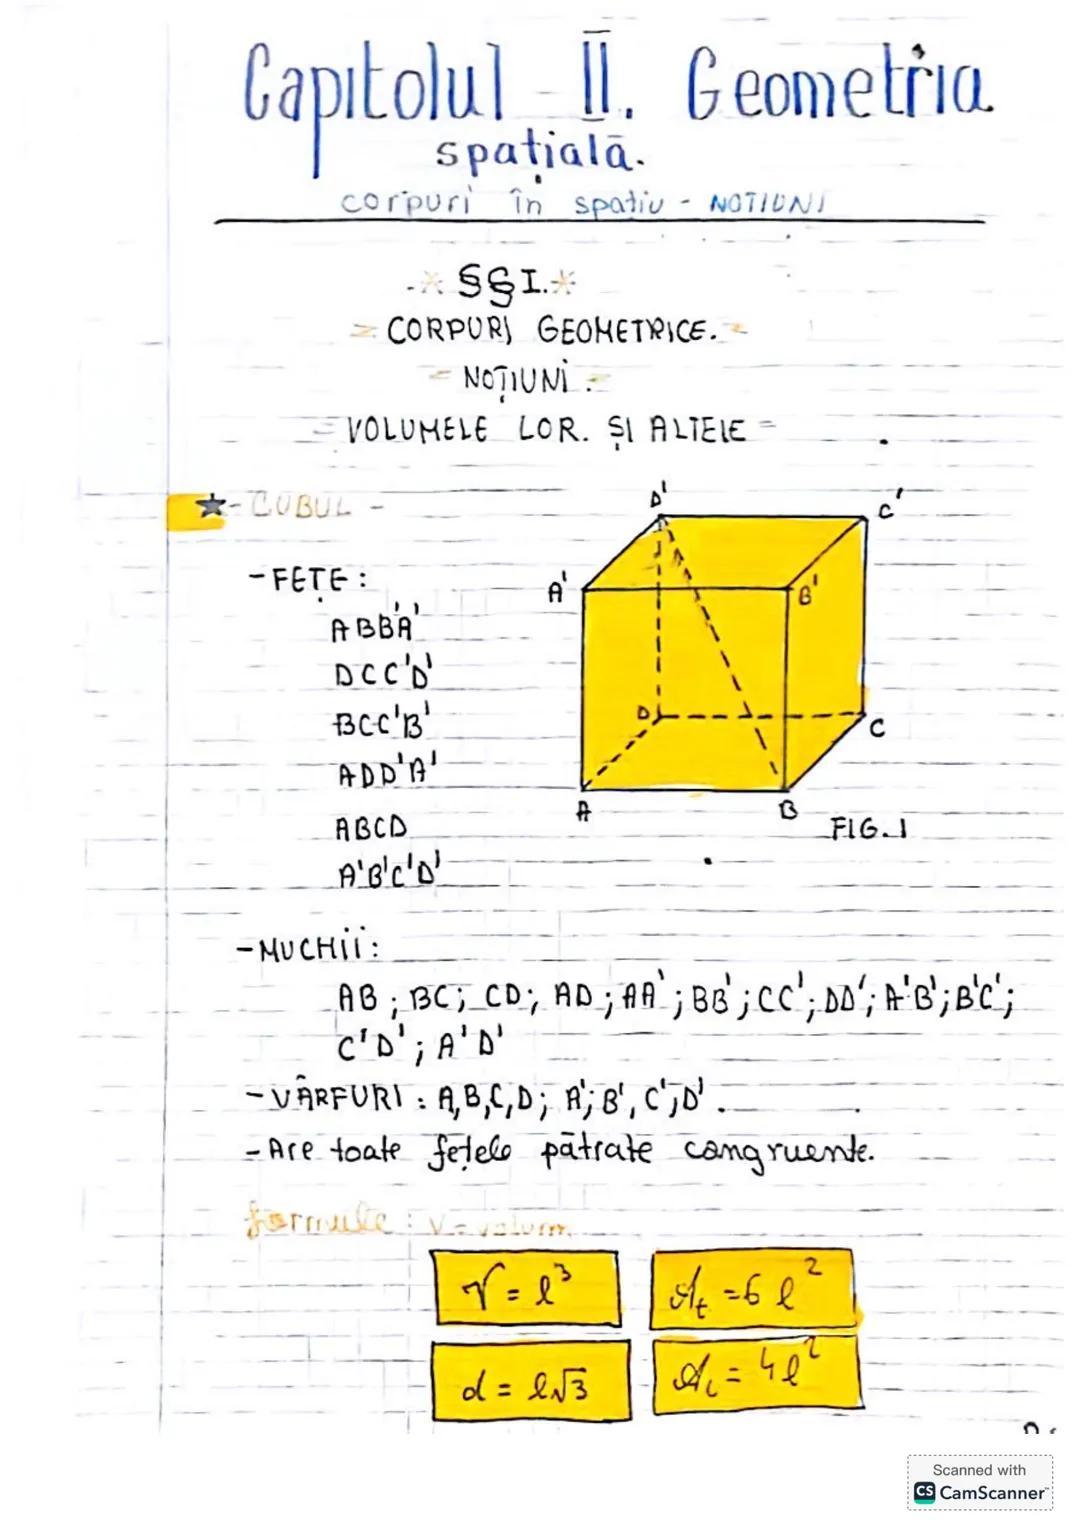 Capitolul II. Geometria
spațială.
corpuri în spatiu - NOTIUNI
* §§I. *
= CORPURI GEOMETRICE. =
= NOȚIUNI =
= VOLUMELE LOR. ȘI ALTELE =
★ - CUBUL -
- FEȚE:
ABB'A'
DCC'D'
BCC'B'
ADD'A'
ABCD
A'B'C'D'
D'
C'
A'
B'
D
C
A
B
FIG. 1
- MUCHII:
AB; BC; CD; AD; AA'; BB'; CC'; DD'; A'B'; B'C';
C'D'; A'D'
- VÂRFURI: A,B,C,D; A'; B', C'; D'.
- Are toate fețele pătrate congruente.
formule: V = volum
V = l³
At = 6l²
d = l√3
Al = 4l²
Scanned with
CS CamScanner